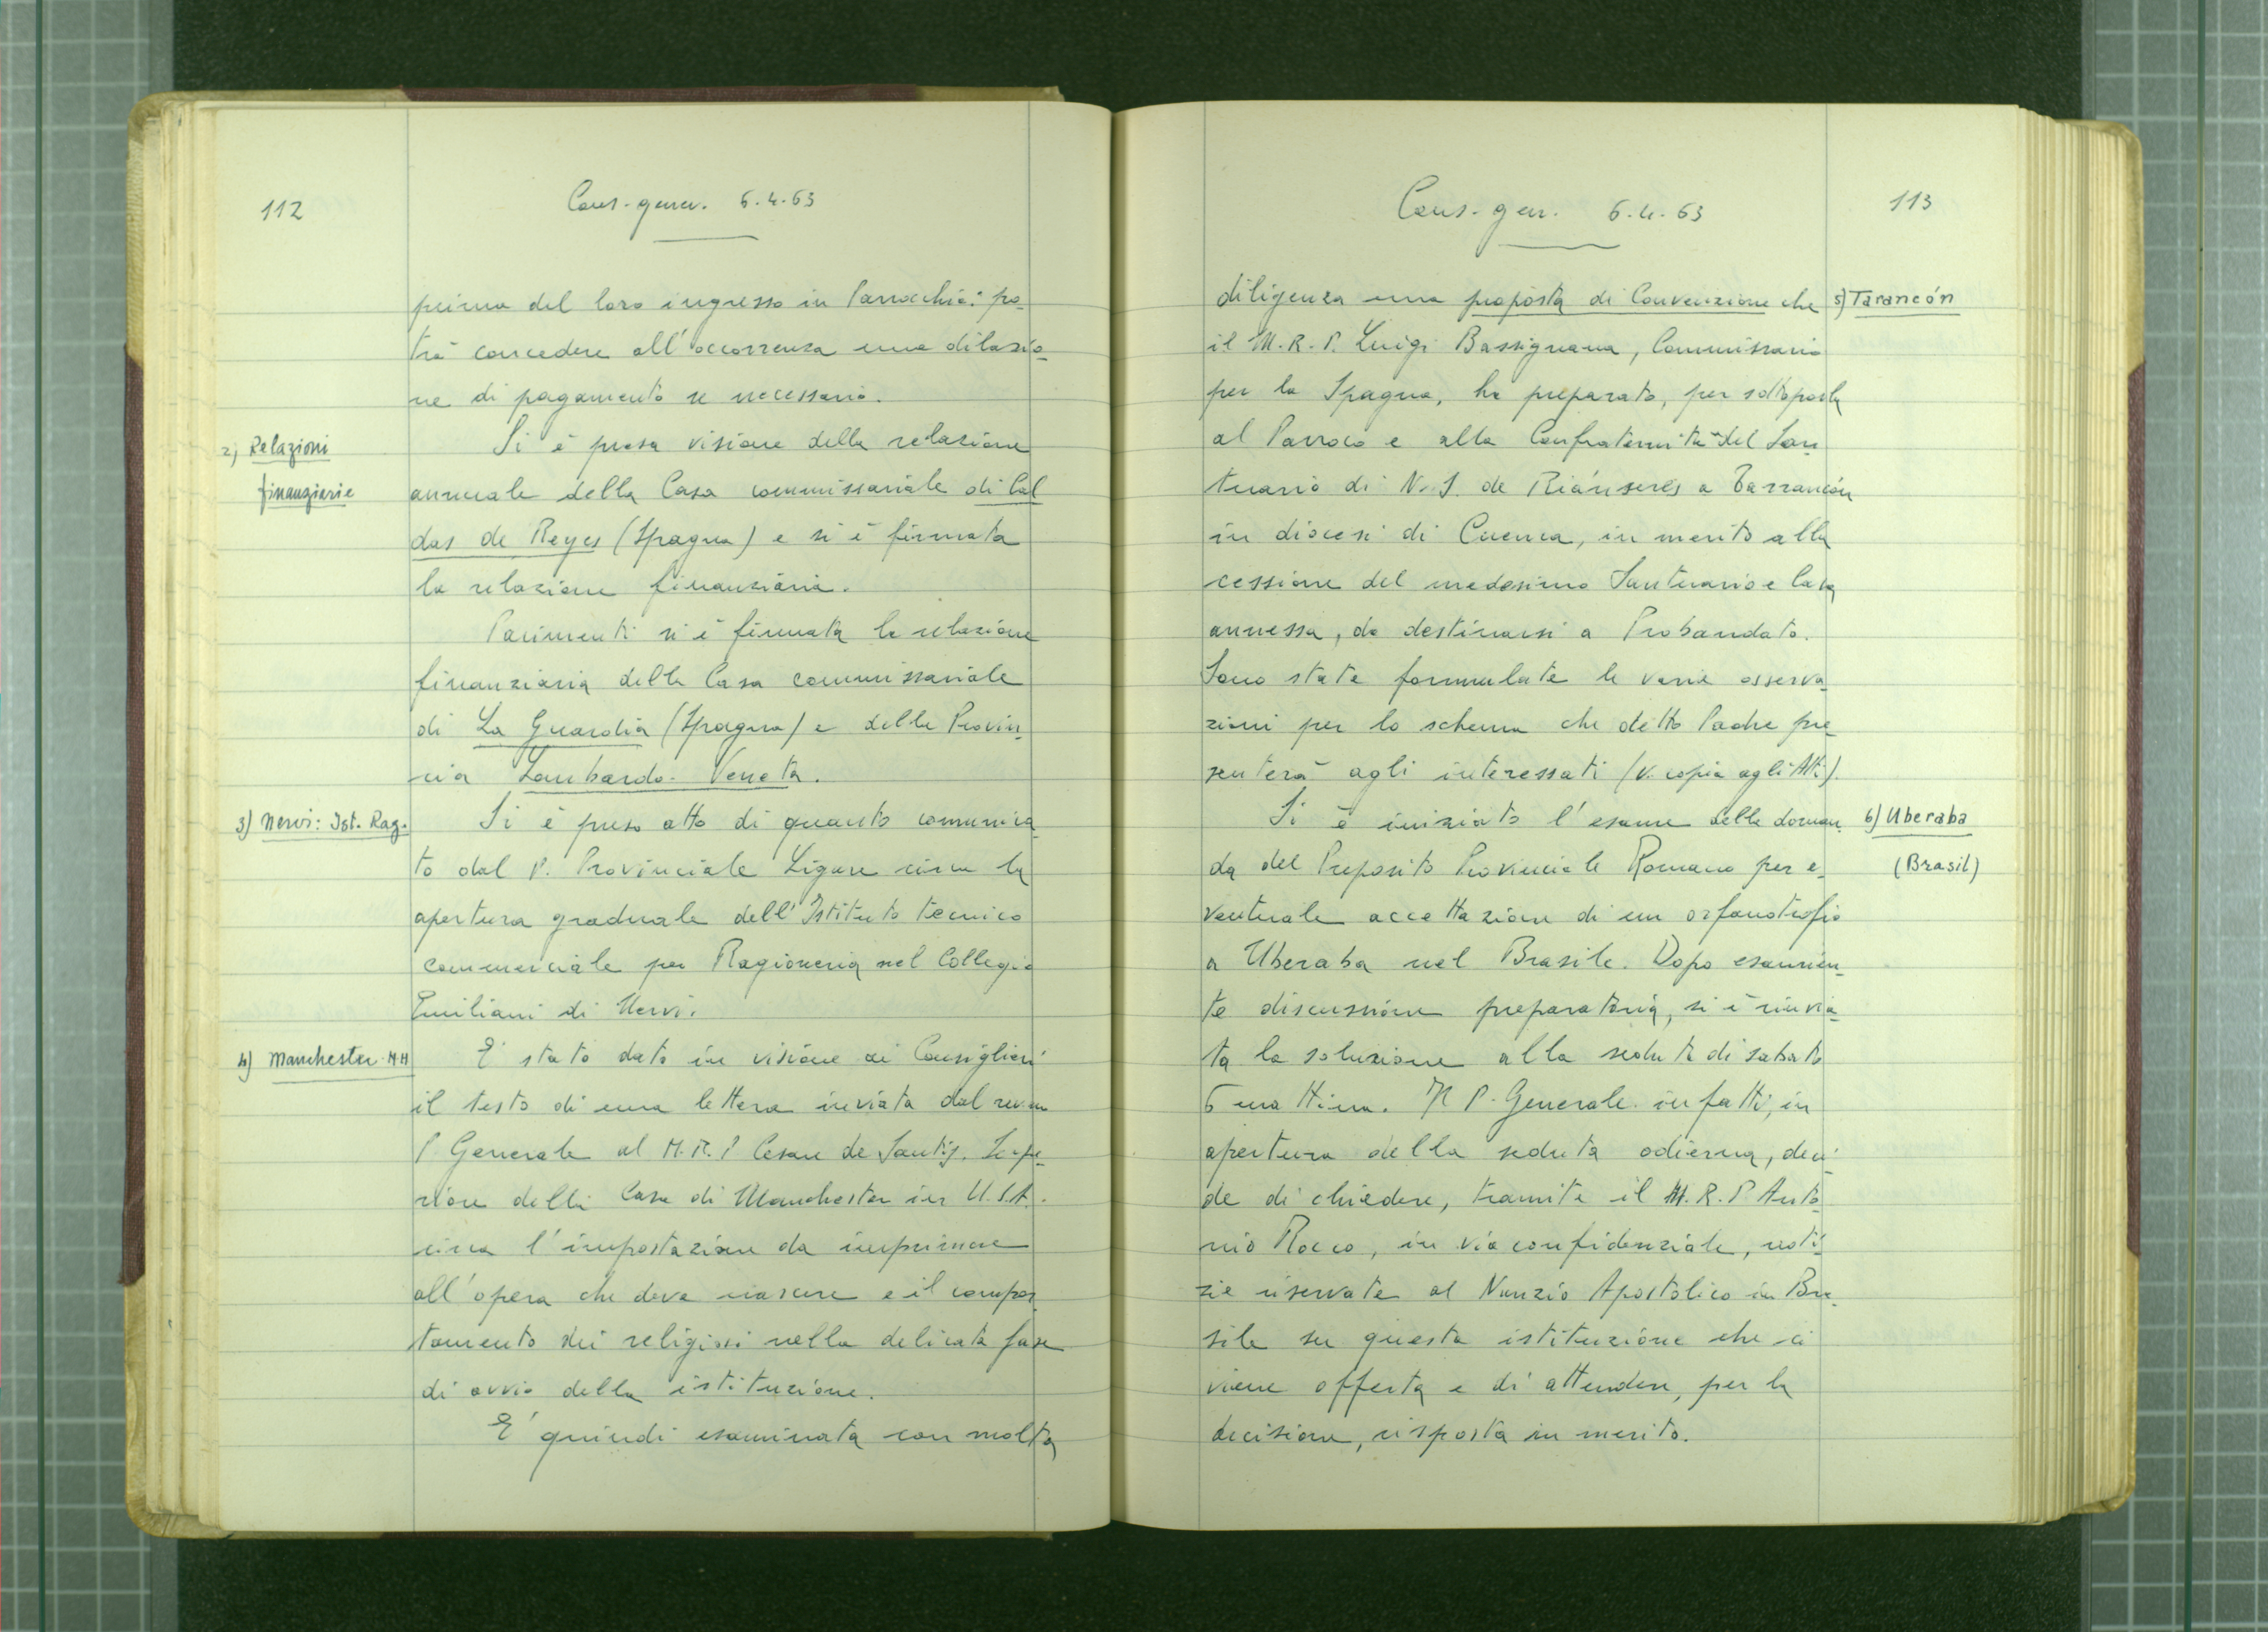 112
Cons. gener. 6.4.63
prima del loro ingresso in Parrocchia: po-
trà concedere all'occorrenza una dilazio-
ne di pagamento se necessario.
2) Relazioni
finanziarie
Si è presa visione della relazione
annuale della Casa commissariale di Cal
das de Reyes (Spagna) e si è firmata
la relazione finanziaria.
Parimenti si è firmata la relazione
finanziaria della Casa commissariale
di La Guardia (Spagna) e della Provin-
cia Lombardo-Veneta.
3) Nervi: Ist. Rag.
Si è preso atto di quanto comunica-
to dal P. Provinciale Ligure circa la
apertura graduale dell'Istituto tecnico
commerciale per Ragioneria nel Collegio
Emiliani di Nervi.
4) Manchester
E' stato dato in visione ai Consiglieri
il testo di una lettera inviata dal rev.mo
P. Generale al M.R.P. Cesare de Santis, Supe-
riore della Casa di Manchester in U.S.A.
circa l'impostazione da imprimere
all'opera che deve nascere e il compor-
tamento dei religiosi nella delicata fase
di avvio della istituzione.
E' quindi esaminata con molta
Cons. gen. 6.4.63
113
diligenza una proposta di Convenzione che
5) Tarancón
il M.R.P. Luigi Bassignana, Commissario
per la Spagna, ha preparato, per sottoporla
al Parroco e alla Confraternita del San
tuario di N.S. de Riánseres a Tarrancón
in diocesi di Cuenca, in merito alla
cessione del medesimo Santuario e Casa
annessa, da destinarsi a Probandato.
Sono state formulate le varie osserva-
zioni per lo schema che detto Padre pre-
senterà agli interessati (v. copia agli Atti).
6) Uberaba
(Brasil)
Si è iniziato l'esame della doman-
da del Preposito Provinciale Romano per e-
ventuale accettazione di un orfanotrofio
a Uberaba nel Brasile. Dopo esaurien-
te discussione preparatoria, si è rinvia-
ta la soluzione alla seduta di sabato
6 mattina. Il P. Generale infatti, in
apertura della seduta odierna, deci-
de di chiedere, tramite il M.R.P. Anto-
nio Rocco, in via confidenziale, noti-
zie riservate al Nunzio Apostolico in Bra-
sile su questa istituzione che ci
viene offerta e di attendere, per la
decisione, risposta in merito.